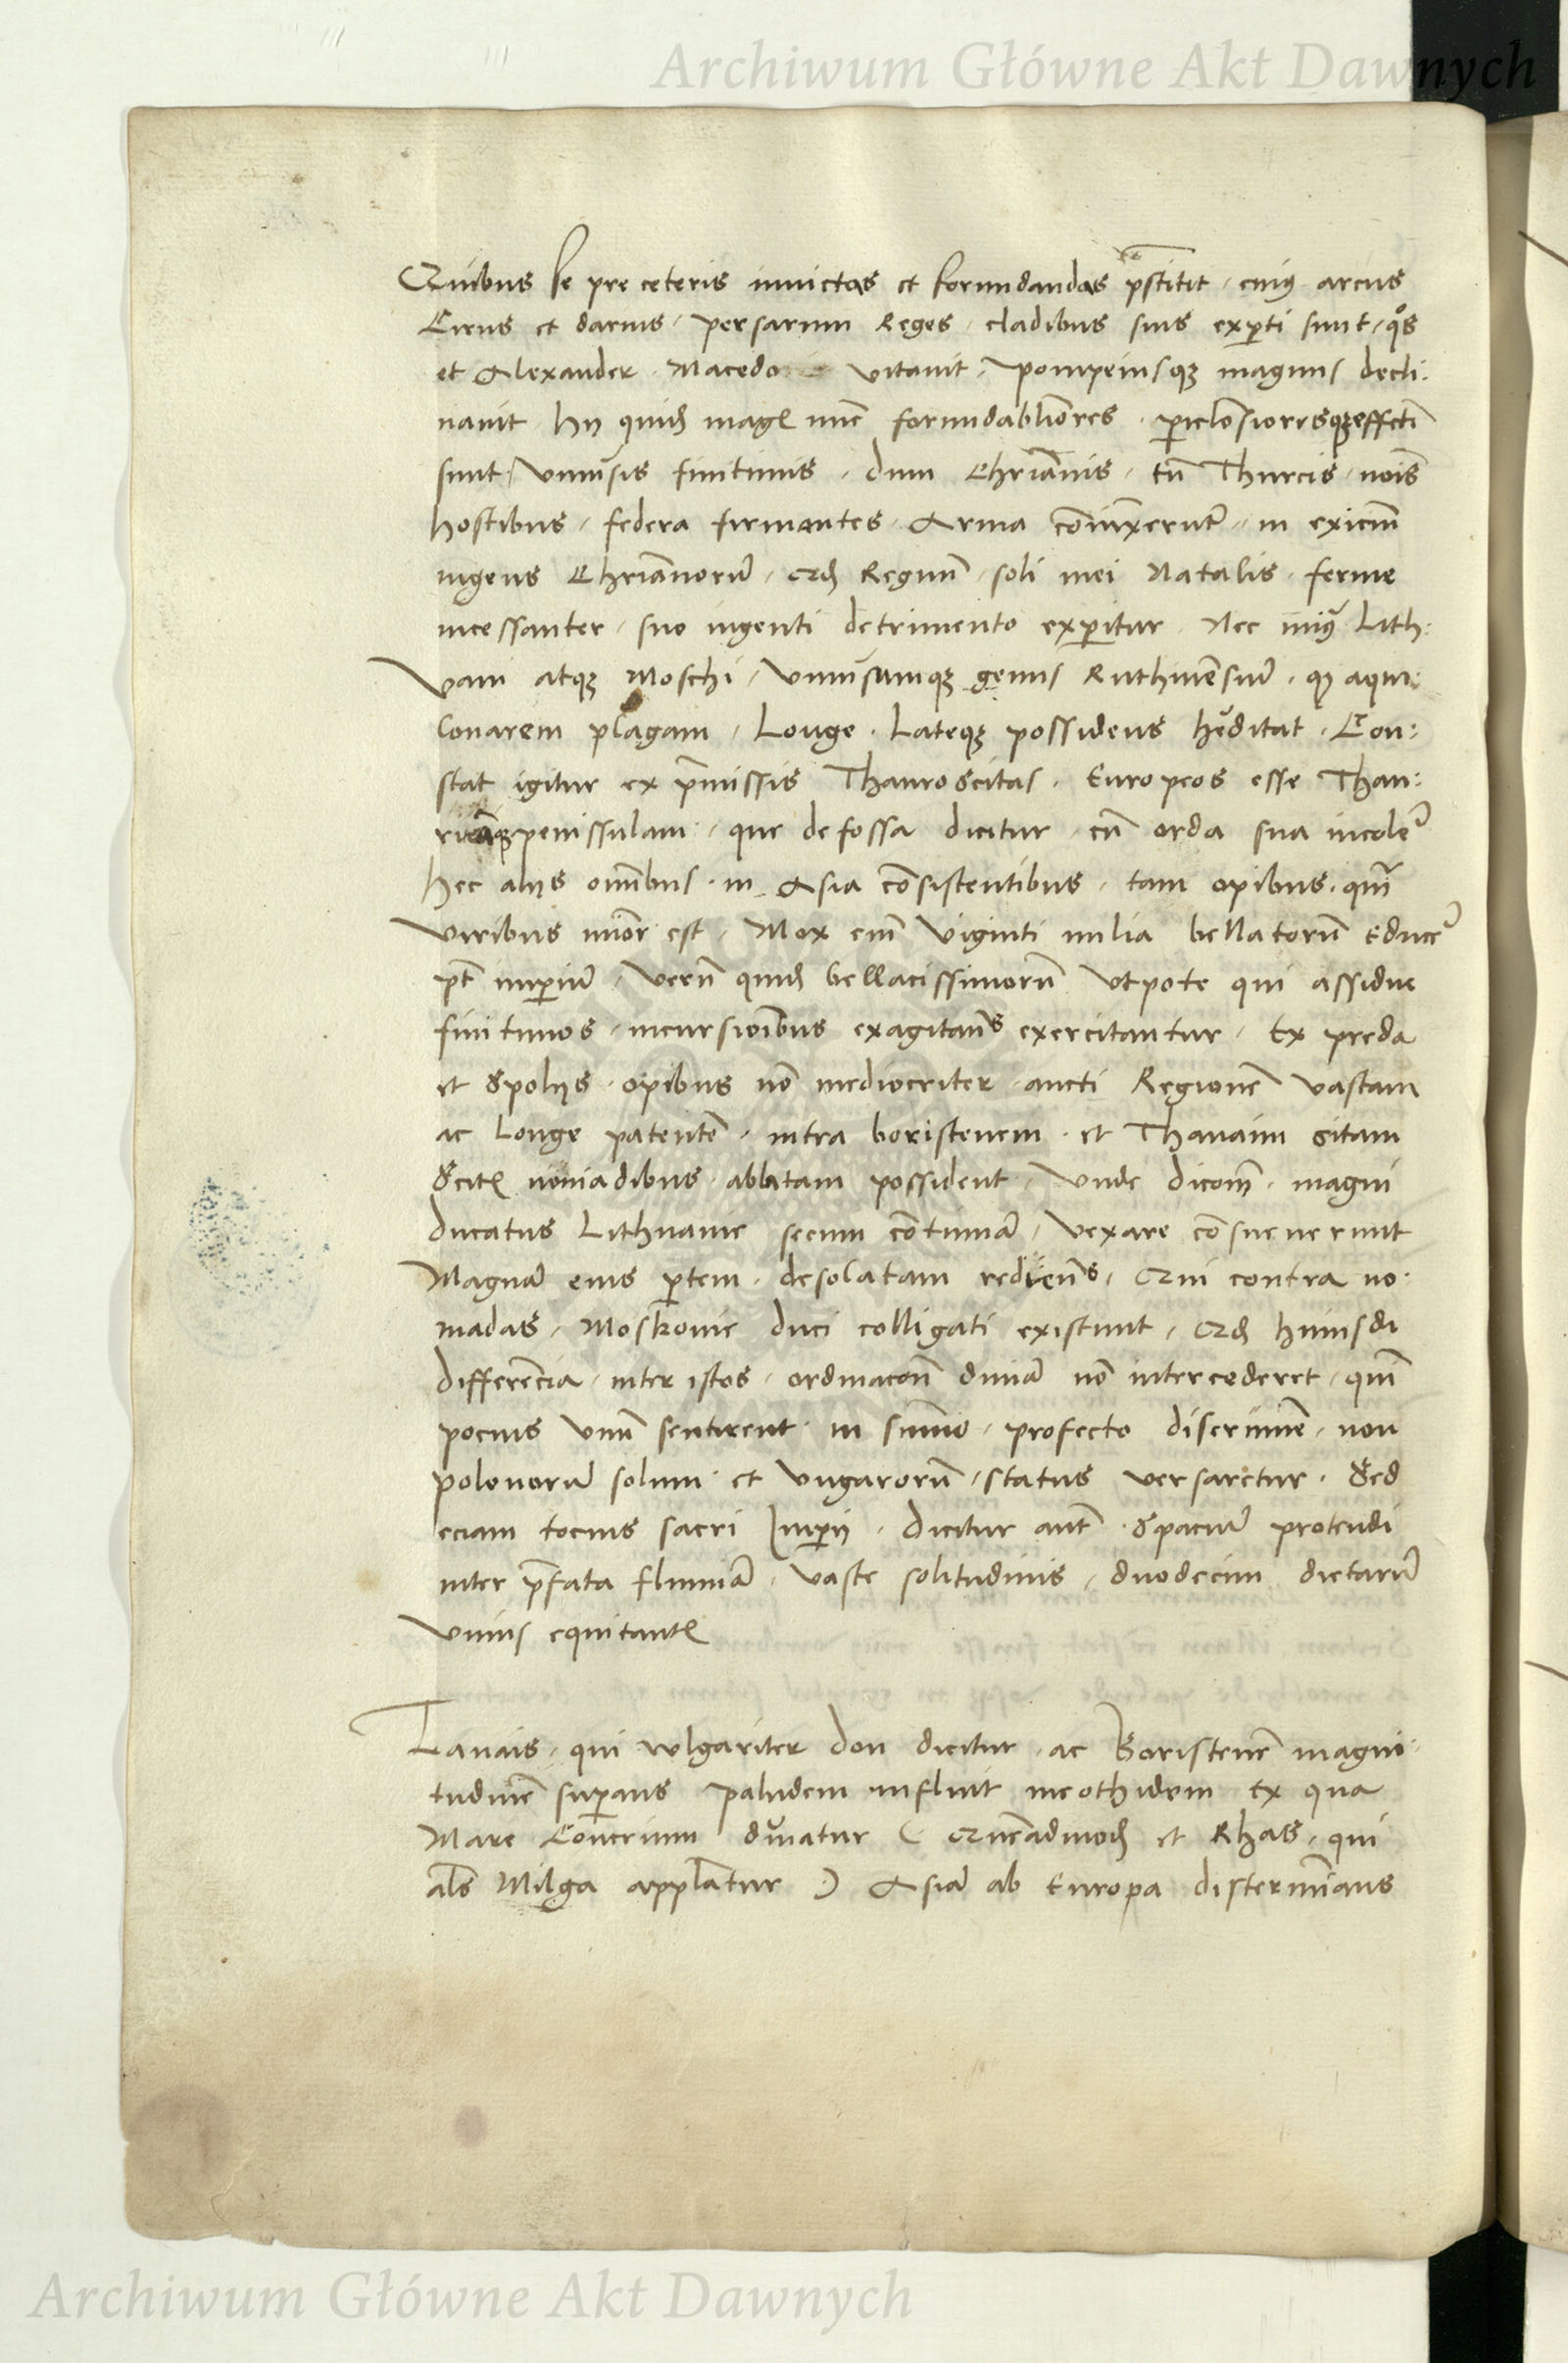 Archiwum Główne Akt Dawnych
Quibus se pre ceteris inuictas et formidandas p̄stitit, cuiꝰ arcus
Cirus et darius, persarum Reges, cladibus suis exp̱ti sunt, qͦs
et Alexander Macedo vitauit, pompeiusqꝫ magnus decli:
nauit hij quid̄ magꝭ nūc formidabl̄iores, ꝑiclōsioresqꝫ effecti
sunt, vniūsis finitimis, dum Chriānis, tū Thurcis, nōis
hostibus, federa firmantes, Arma cōiunxerunt, in exiciū
ingens Chriānorū, Qd̄ Regnū soli mei Natalis, ferme
incessanter, suo ingenti detrimento exp̱itur, Nec minꝰ Lith:
vani atqꝫ Moschi, vniūsumqꝫ genus Ruthinēsiū, qd̄ aqui:
lonarēm plagam, Longe, Lateqꝫ possidens hēditat, Con:
stat igitur ex p̄missis Thauroscitas, Europeos esse Thau:
ricāqꝫ penissulam, que defossa dicitur, cū orda sua incolē
hec alijs om̄ibus in Asia cōsistentibus, tam opibus, qm̄
viribus minor est, Mox em̄ viginti milia bellatorū educē
pt̄ imꝑiū, verū quid̄ bellacissimorū vtpote qui assidue
finitimos, incursioībus exagitant̄s exercitantur, Ex preda
et Spolijs opibus nō mediocriter aucti Regionē vastam
ac Longe patentē, intra boristenem et Thanaim sitam
Scitꝭ nomadibus ablatam possident, vnde dicoīm magni
ducatus Lithuanie secum cōtiniā, vexare cōsueuerunt
Magnā eius ꝑtem, desolatam redient̄s, Qui contra no:
madas, Moskouie duci colligati existunt, Qd̄ huiusdi
differēcia, inter istos, ordinacōn̄ diuīa nō intercederet, qm̄
pocius vnū sentirent in sum̄o, profecto discrimīe, non
polonorū solum et vngarorū, status versaretur, Sed
eciam tocius sacri Imꝑij, dicitur aut̄ Spaciū protendi
inter p̄fata fluminā, vaste solitudinis, duodecim dietarū
vnius equitantꝭ
Tanais, qui wlgariter don dicitur, ac Boristenē magni:
tudinē suꝑans paludem influit meothidem Ex qua
Mare Eoncrium diuatur ( Quēadmod̄ et Rhas, qui
als̄ Milga appl̄atur ) Asiā ab Europa disterminans
Archiwum Główne Akt Dawnych